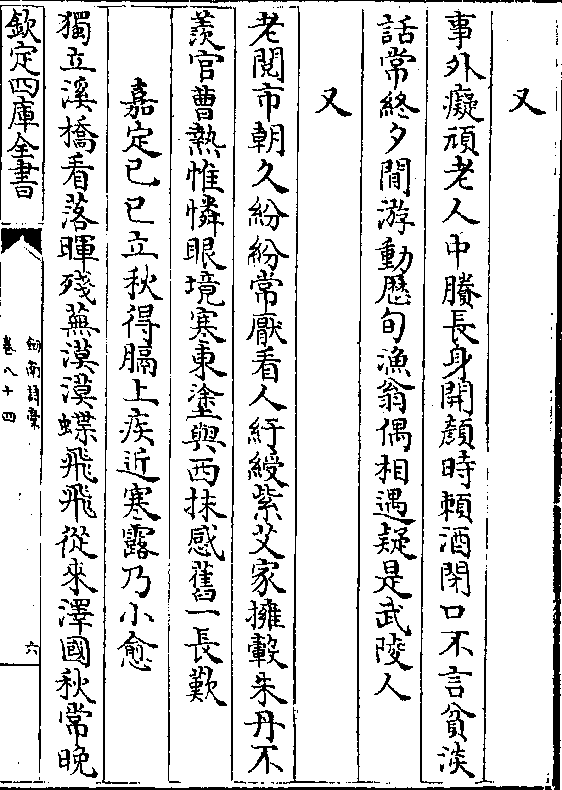 又
事外癡頑老人中賸長身開顏時頼酒閉口不言貧淡
話常終夕閒游動歴旬漁翁偶相遇疑是武陵人
又
老閱市朝久紛紛常厭看人紆綬紫艾家擁轂朱丹不
羨官曹熱惟憐眼境寒東塗與西抹感舊一長歎
嘉定己巳立秋得膈上疾近寒露乃小愈
獨立溪橋看落暉殘蕪漠漠蝶飛飛從來澤國秋常晚
欽定四庫全書
劒南詩槀
卷八十四
六